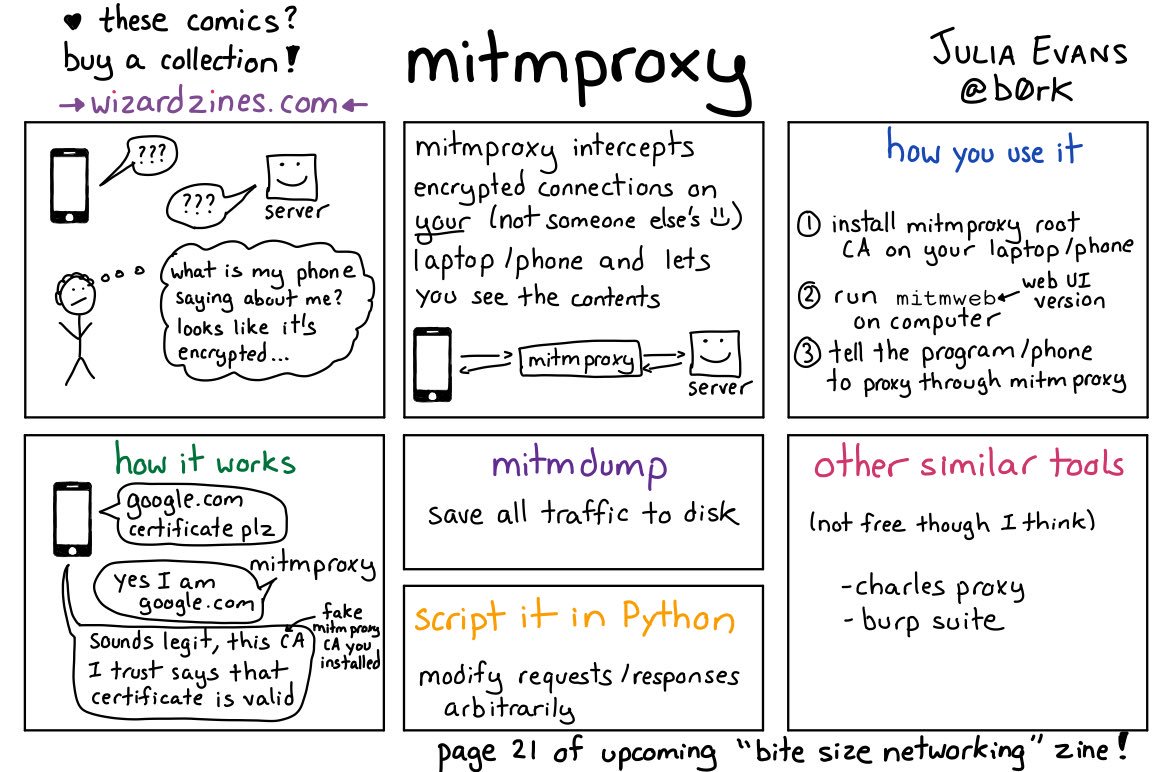 ♥ these comics?
buy a collection!
→wizardzines.com←
mitmproxy
JULIA EVANS
@b0rk
???
???
server
what is my phone
saying about me?
looks like it's
encrypted...
mitmproxy intercepts
encrypted connections on
your (not someone else's :))
laptop/phone and lets
you see the contents
mitmproxy
server
how you use it
① install mitmproxy root
CA on your laptop/phone
② run mitmweb ← web UI
version
on computer
③ tell the program/phone
to proxy through mitmproxy
how it works
google.com
certificate plz
mitmproxy
yes I am
google.com
Sounds legit, this CA
I trust says that
certificate is valid
fake
mitmproxy
CA you
installed
mitmdump
save all traffic to disk
script it in Python
modify requests/responses
arbitrarily
other similar tools
(not free though I think)
-charles proxy
- burp suite
page 21 of upcoming "bite size networking" zine!